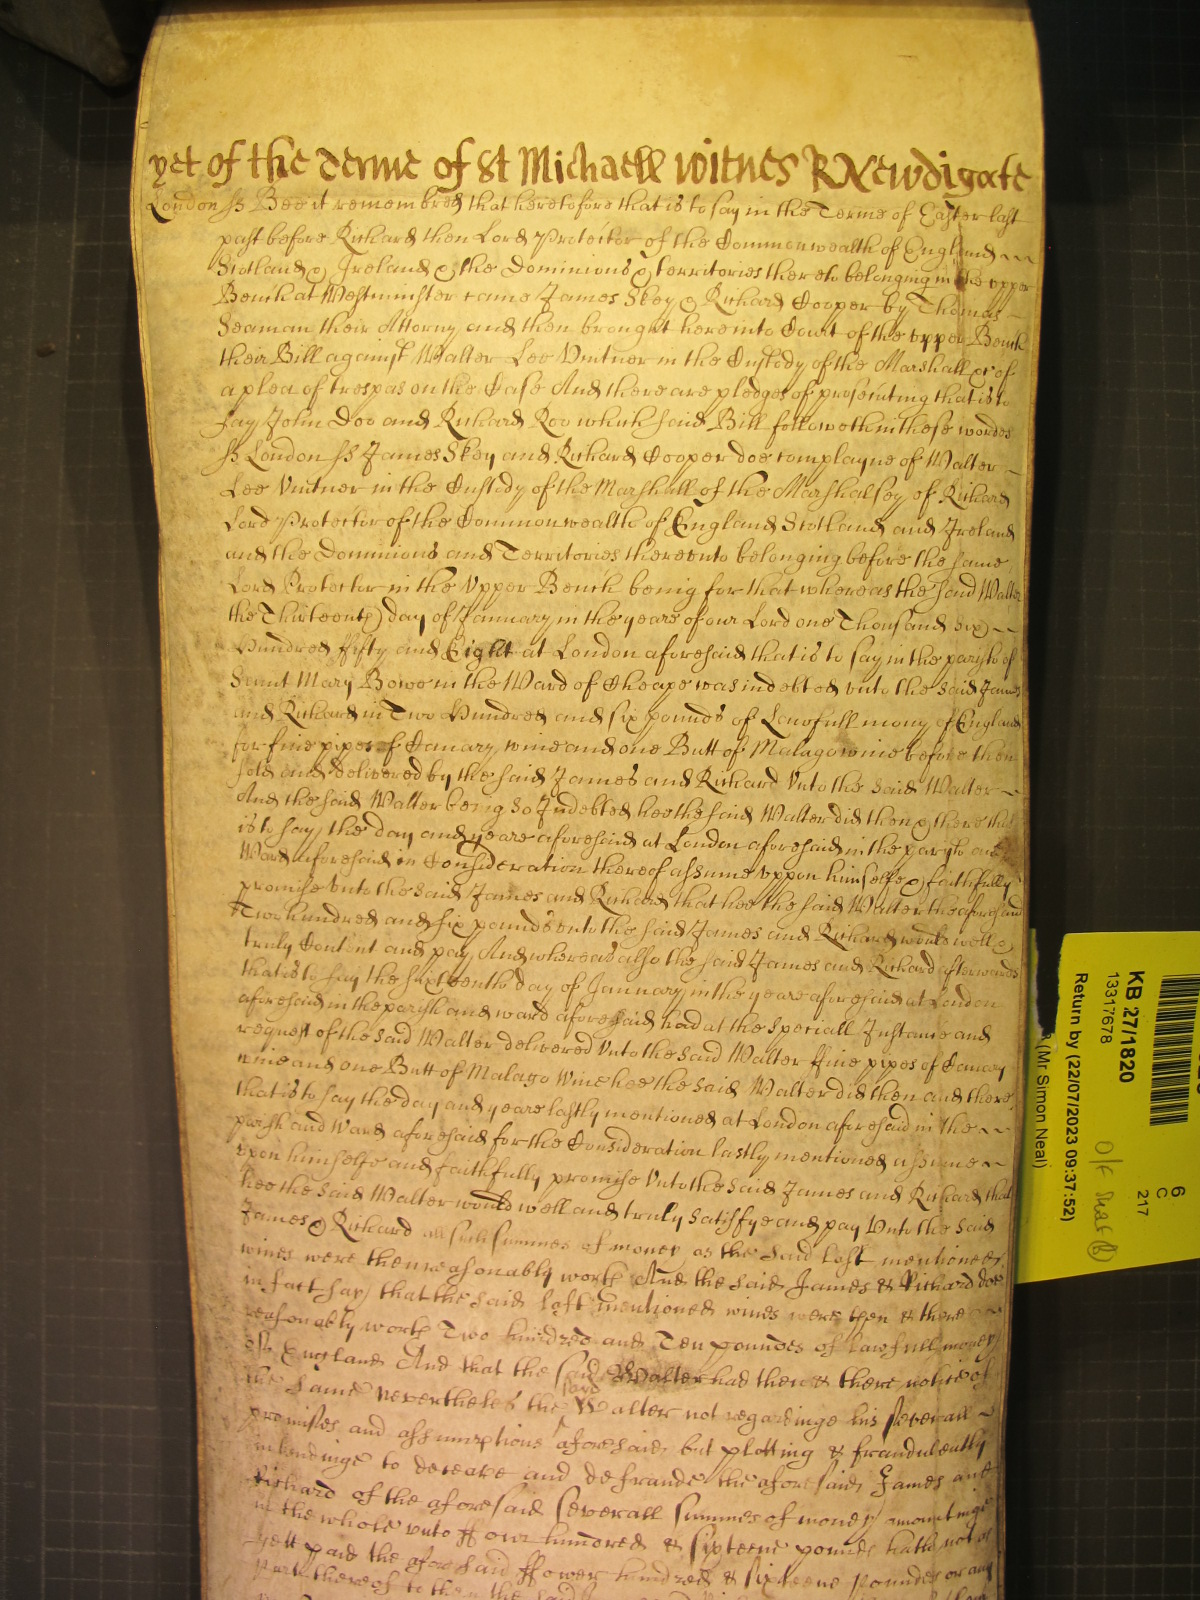 yet of the Terme of St Michaell Witnes R Newdigate
London ss Bee it remembred that heretofore that is to say in the Terme of Easter last
past before Richard then Lord Protector of the Commonwealth of England
Scotland & Ireland & the Dominions & territories thereto belonging in the upper
Bench at Westminster came James Skey & Richard Cooper by Thomas
Seaman their Attorny and then brought here into Court of the upper Bench
their Bill against Walter Lee Vintner in the Custody of the Marshall &c of
a plea of trespas on the Case And there are pledges of prosecuting that is to
say John Doo and Richard Roo which said Bill followeth in these wordes
ss London ss James Skey and Richard Cooper doe complayne of Walter
Lee Vintner in the Custody of the Marshall of the Marshalsey of Richard
Lord Protector of the Commonwealth of England Scotland and Ireland
and the Dominions and Territories thereunto belonging before the same
Lord Protector in the Upper Bench being for that whereas the said Walter
the Thirteenth day of January in the yeare of our Lord one Thousand six
Hundred fifty and Eight at London aforesaid that is to say in the parish of
Saint Mary Bowe in the Ward of Cheape was indebted unto the said James
and Richard in Two Hundred and six pounds of Lawfull mony of England
for five pipes of Canary wine and one Butt of Malago wine before then
sold and delivered by the said James and Richard Unto the said Walter
And the said Walter being so Indebted hee the said Walter did then & there that
is to say the day and yeare aforesaid at London aforesaid in the parish and
Ward aforesaid in Consideration thereof assume uppon himselfe & faithfully
promise Unto the said James and Richard that hee the said Walter the aforesaid
Two hundred and six pounds unto the said James and Richard would well &
truly Content and pay And whereas also the said James and Richard afterwards
that is to say the sixteenth day of January in the yeare aforesaid at London
aforesaid in the parish and ward aforesaid had at the speciall Instance and
request of the said Walter delivered Unto the said Walter ffive pipes of Canary
wine and one Butt of Malago Wine hee the said Walter did then and there
that is to say the day and yeare lastly mentioned at London aforesaid in the
parish and Ward aforesaid for the Consideration lastly mentioned assume
upon himselfe and faithfully promise Unto the said James and Richard that
hee the said Walter would well and truly satisfye and pay Unto the said
James & Richard all such summes of money as the said last mentioned
wines were then reasonably worth And the said James & Richard doe
in fact say that the said last mentioned wines were then & there
reasonably worth Two hundred and Ten poundes of lawfull money
of England And that the said Walter had then & there notice of
the same neverthelesse the said Walter not regardinge his severall
promises and assumptions aforesaid but plotting & fraudulently
intendinge to deceave and defraude the aforesaid James and
Richard of the aforesaid severall summes of money amountinge
in the whole unto ffour hundred & sixteene pounds hath not as
yett paid the aforesaid ffower hundred & sixteene poundes or any
parte thereof to them the said
KB 27/1820
13317678
Return by (22/07/2023 09:37:52)
(Mr Simon Neal)
6
C
217